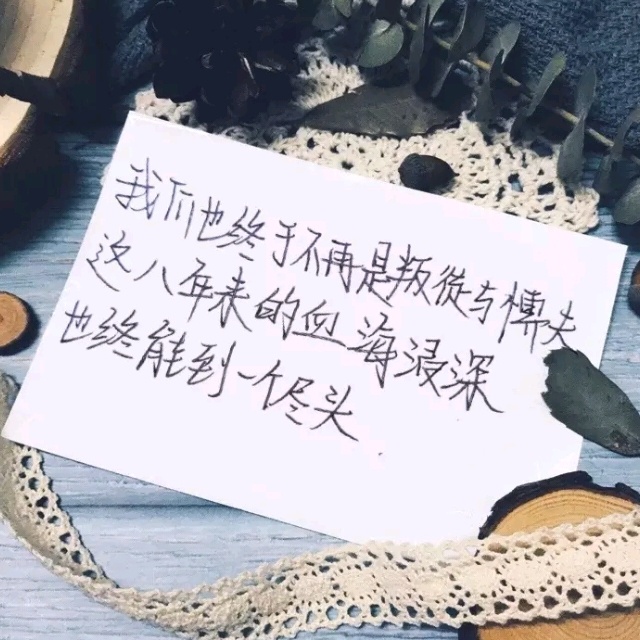 我们也终于不再是叛徒与懦夫
这八年来的血海浸深
也终能到一个尽头